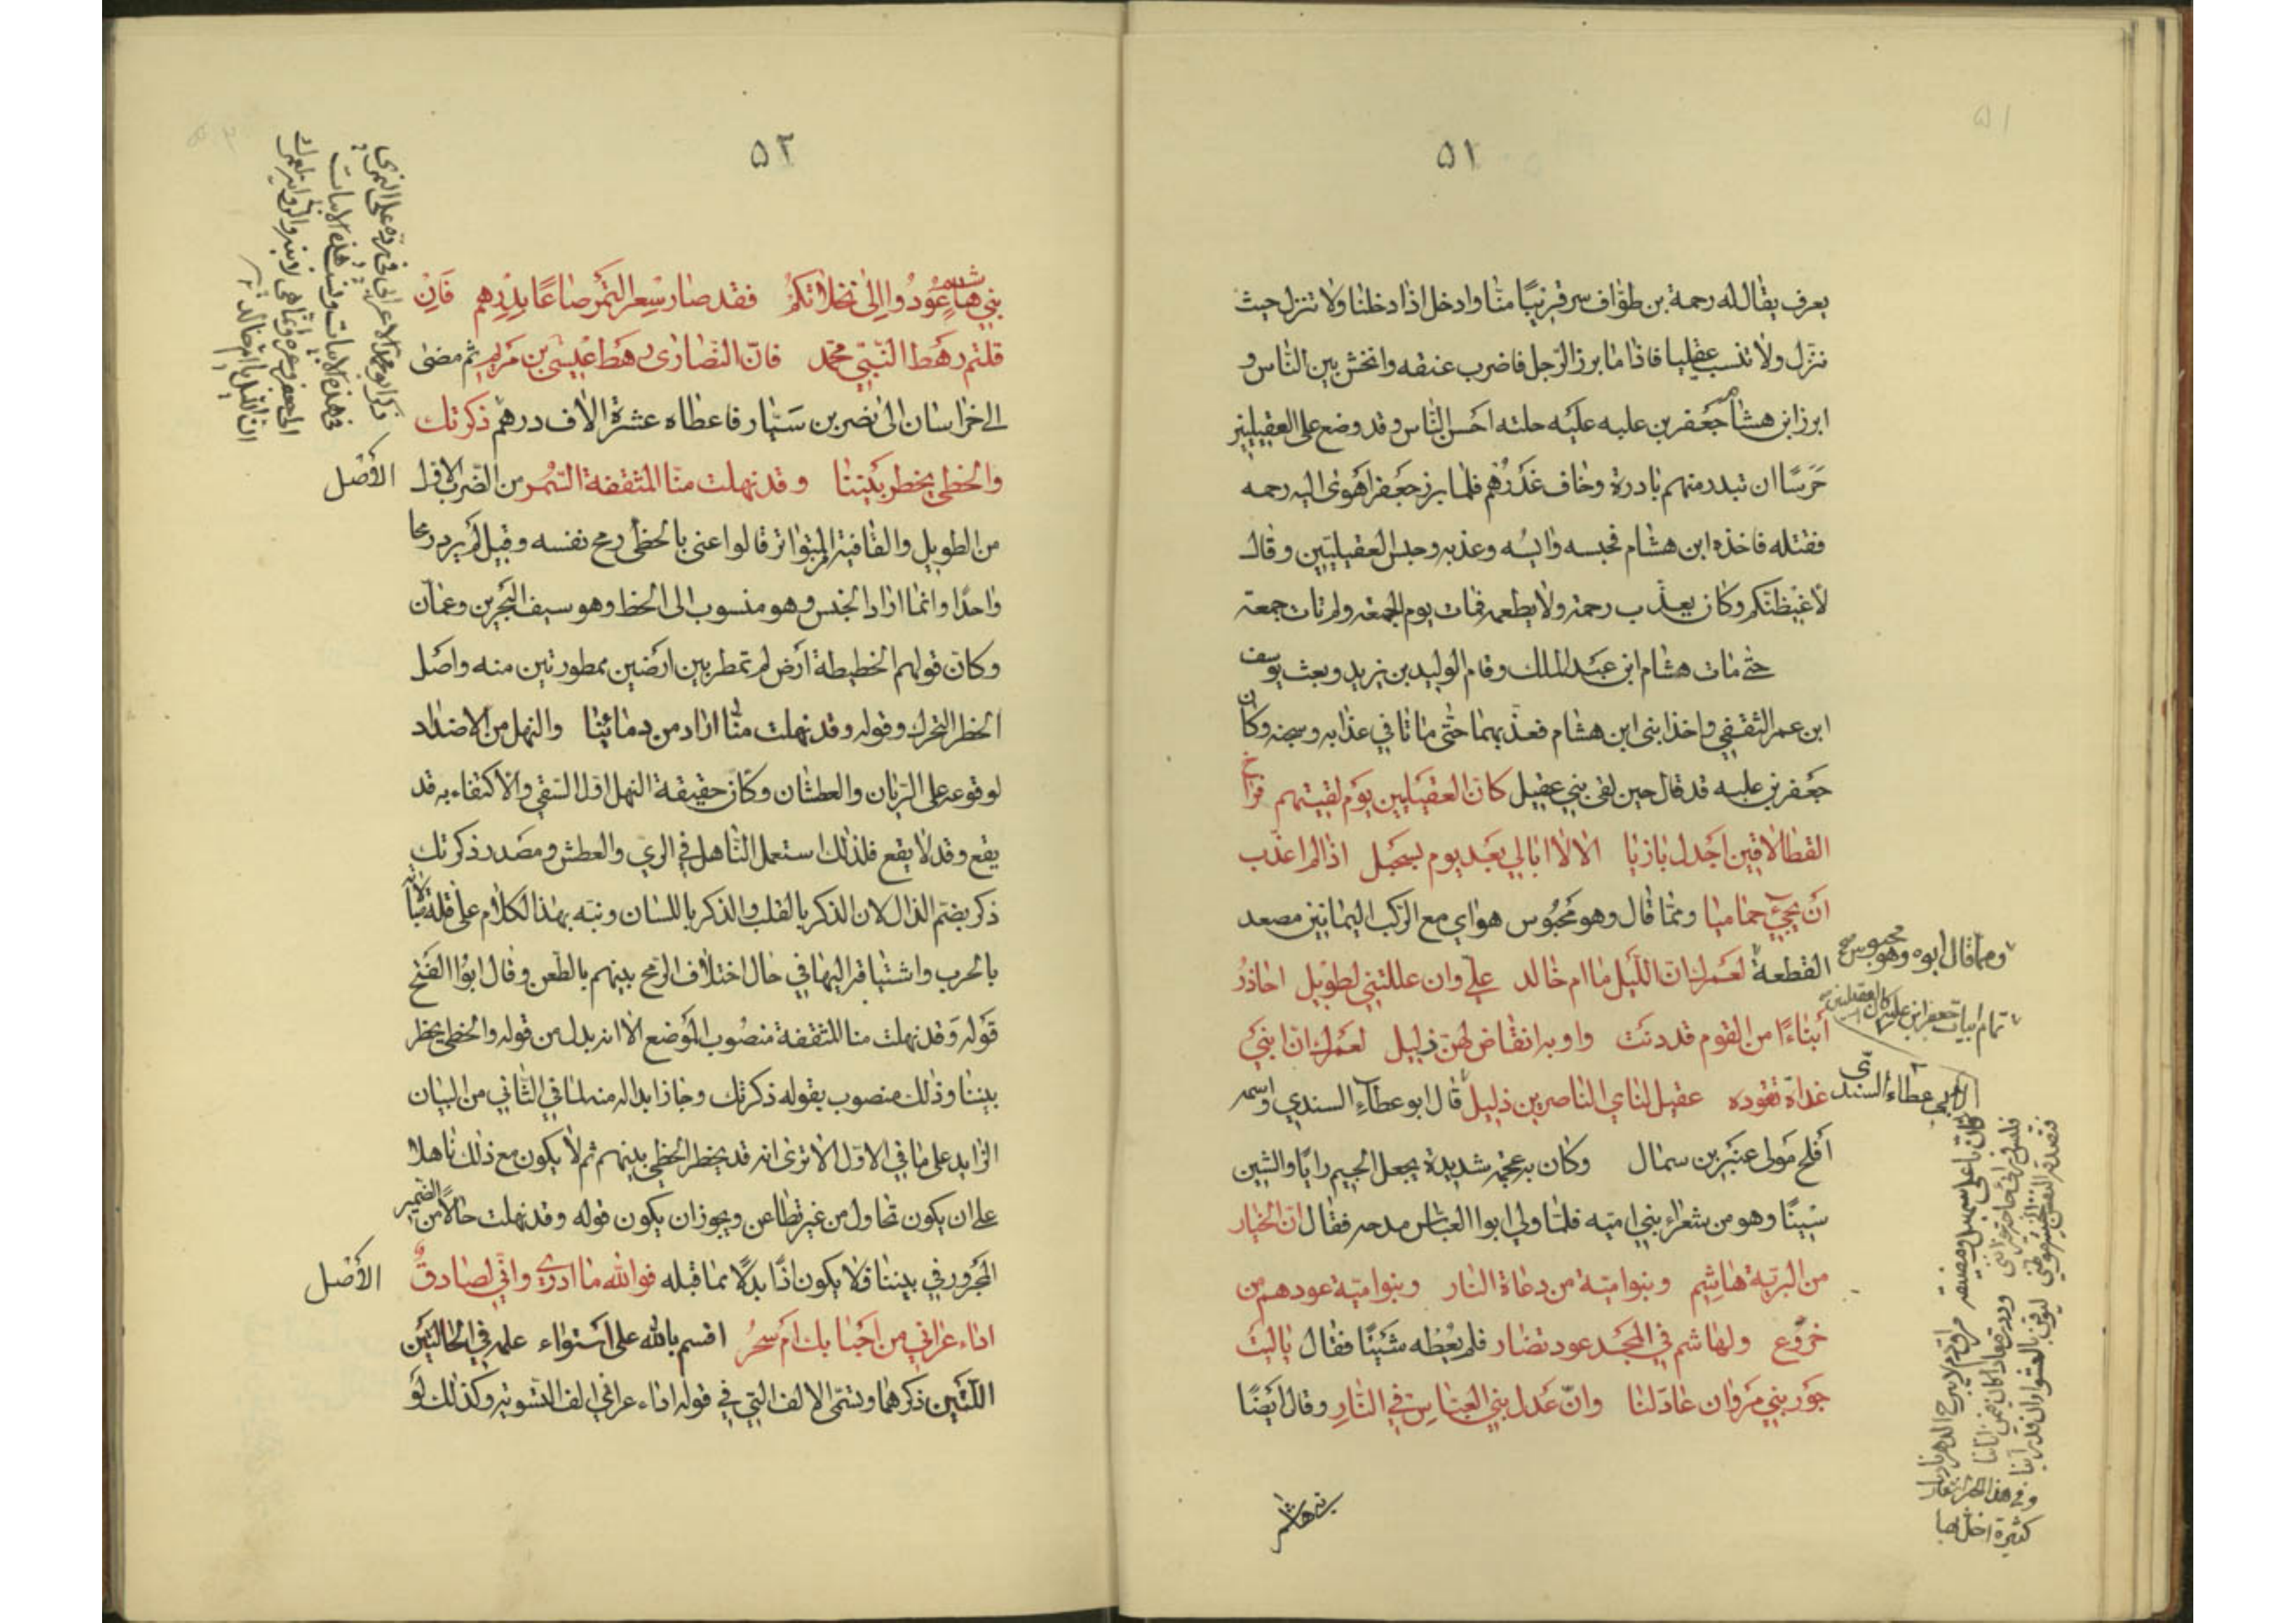 ٥١
يعرف يقال له رحمة بن طواف سر قريبًا منا وادخل اذا دخلنا ولا تنزل حيث
ننزل ولا تنسب عقليا فاذا ما برز الرجل فاضرب عنقه وانخش بين الناس و
ابرز ابن هشام جعفر بن علبه عليه حلته احسن الناس وقد وضع على العقيليين
حَرَسًا ان تبدر منهم بادرة وخاف غدرهم فلما برز جعفر اهوى اليه رحمه
فقتله فاخذه ابن هشام فحبسه وعذبه وحبس العقيليين وقال
لأغيظنكم وكان يعذب رحمة ولا يطعمه فمات يوم الجمعة ولم تات جمعة
حتى مات هشام ابن عبد الملك وقام الوليد بن يزيد وبعث يوسف
ابن عمر الثقفي واخذ ابنى ابن هشام فعذبهما حتى ماتا في عذابه وسجنه وكان
جعفر بن علبه قد قال حين لقى بني عقيل كان العقيليين يوم لقيتهم فراخ
القطا لاقين اجدل بازيا الا لا ابالي بعد يوم بسحبل اذا لم اعذب
ان يجيء حماميا ومما قال وهو محبوس هواي مع الركب اليمانين مصعد
القطعة لعمرك ان الليل ما ام خالد علي وان عللتني لطويل احاذر
أنباءًا من القوم قد دنت واوبة انقاض لهن ذليل لعمرك ان ابني
غداة تقوده عقيل لناي الناصرين ذليل قال ابو عطاء السندي واسمه
أفلح مولى عنبر بن سمال وكان به عجمة شديدة يجعل الجيم زايًا والشين
سينًا وهو من شعراء بني اميه فلما ولي ابو العباس مدحه فقال ان الخيار
من البرية هاشم وبنو امية من دعاة النار وبنو امية عودهم من
خروع ولهاشم في المجد عود نضار فلم يعطه شيئًا فقال ياليت
جور بني مروان عاد لنا وانّ عدل بني العباس في النار وقال ايضًا
ومما قال ابوه وهو محبوس صح
تمام ابيات جعفر ابن علبة كان العقيليين
لابي عطاء السندي
بني هاشم
٥٢
بني هاشم عودوا إلى نخلاتكم فقد صار سعر التمر صاعًا بدرهم فان
قلتم رهط النبي محمد فانّ النصارى رهط عيسى بن مريم ثم مضى
الى خراسان الى نصر بن سيار فاعطاه عشرة الاف درهم ذكرتك
والخطي يخطر بيننا وقد نهلت منا المثقفة السمر من الضرب الاول
من الطويل والقافية المتواتر قالوا عنى بالخطي رمح نفسه وقيل لم يرد رمحا
واحدًا وانما اراد الجنس وهو منسوب الى الخط وهو سيف البحرين وعمان
وكان قولهم الخطيطة أرض لم تمطر بين ارضين ممطورتين منه واصل
الخطر التحرك وقوله وقد نهلت منا اراد من دمائنا والنهل من الاضداد
لوقوعه على الريان والعطشان وكان حقيقة النهل اول السقي والاكتفاء به قد
يقع وقد لا يقع فلذلك استعمل الناهل في الري والعطش ومصدر ذكرتك
ذكر بضم الذال لان الذكر بالقلب والذكر باللسان ونبه بهذا الكلام على قلة مبالاته
بالحرب واشتياقه اليها في حال اختلاف الرمح بينهم بالطعن وقال ابو الفتح
قوله وقد نهلت منا المثقفة منصوب الموضع الا انه بدل من قوله والخطي يخطر
بيننا وذلك منصوب بقوله ذكرتك وجاز ابداله منه لما في الثاني من البيان
الزايد على ما في الاول الا ترى انه قد يخطر الخطي بينهم ثم لا يكون مع ذلك ناهلا
على ان يكون تحاول من غير تطاعن ويجوز ان يكون قوله وقد نهلت حالًا من الضمير
المجرور في بيننا فلا يكون اذًا بدلًا مما قبله فوالله ما ادري واني لصادق
اداء عراني من احبابك ام سحر اقسم بالله على استواء علمه في الحالتين
اللتين ذكرهما وتسمى الالف التي في قوله اداء عراني الف التسوية وكذلك لو
الأصل
الأصل
ذكر ابو محمد الاعرابي في رده على النمري